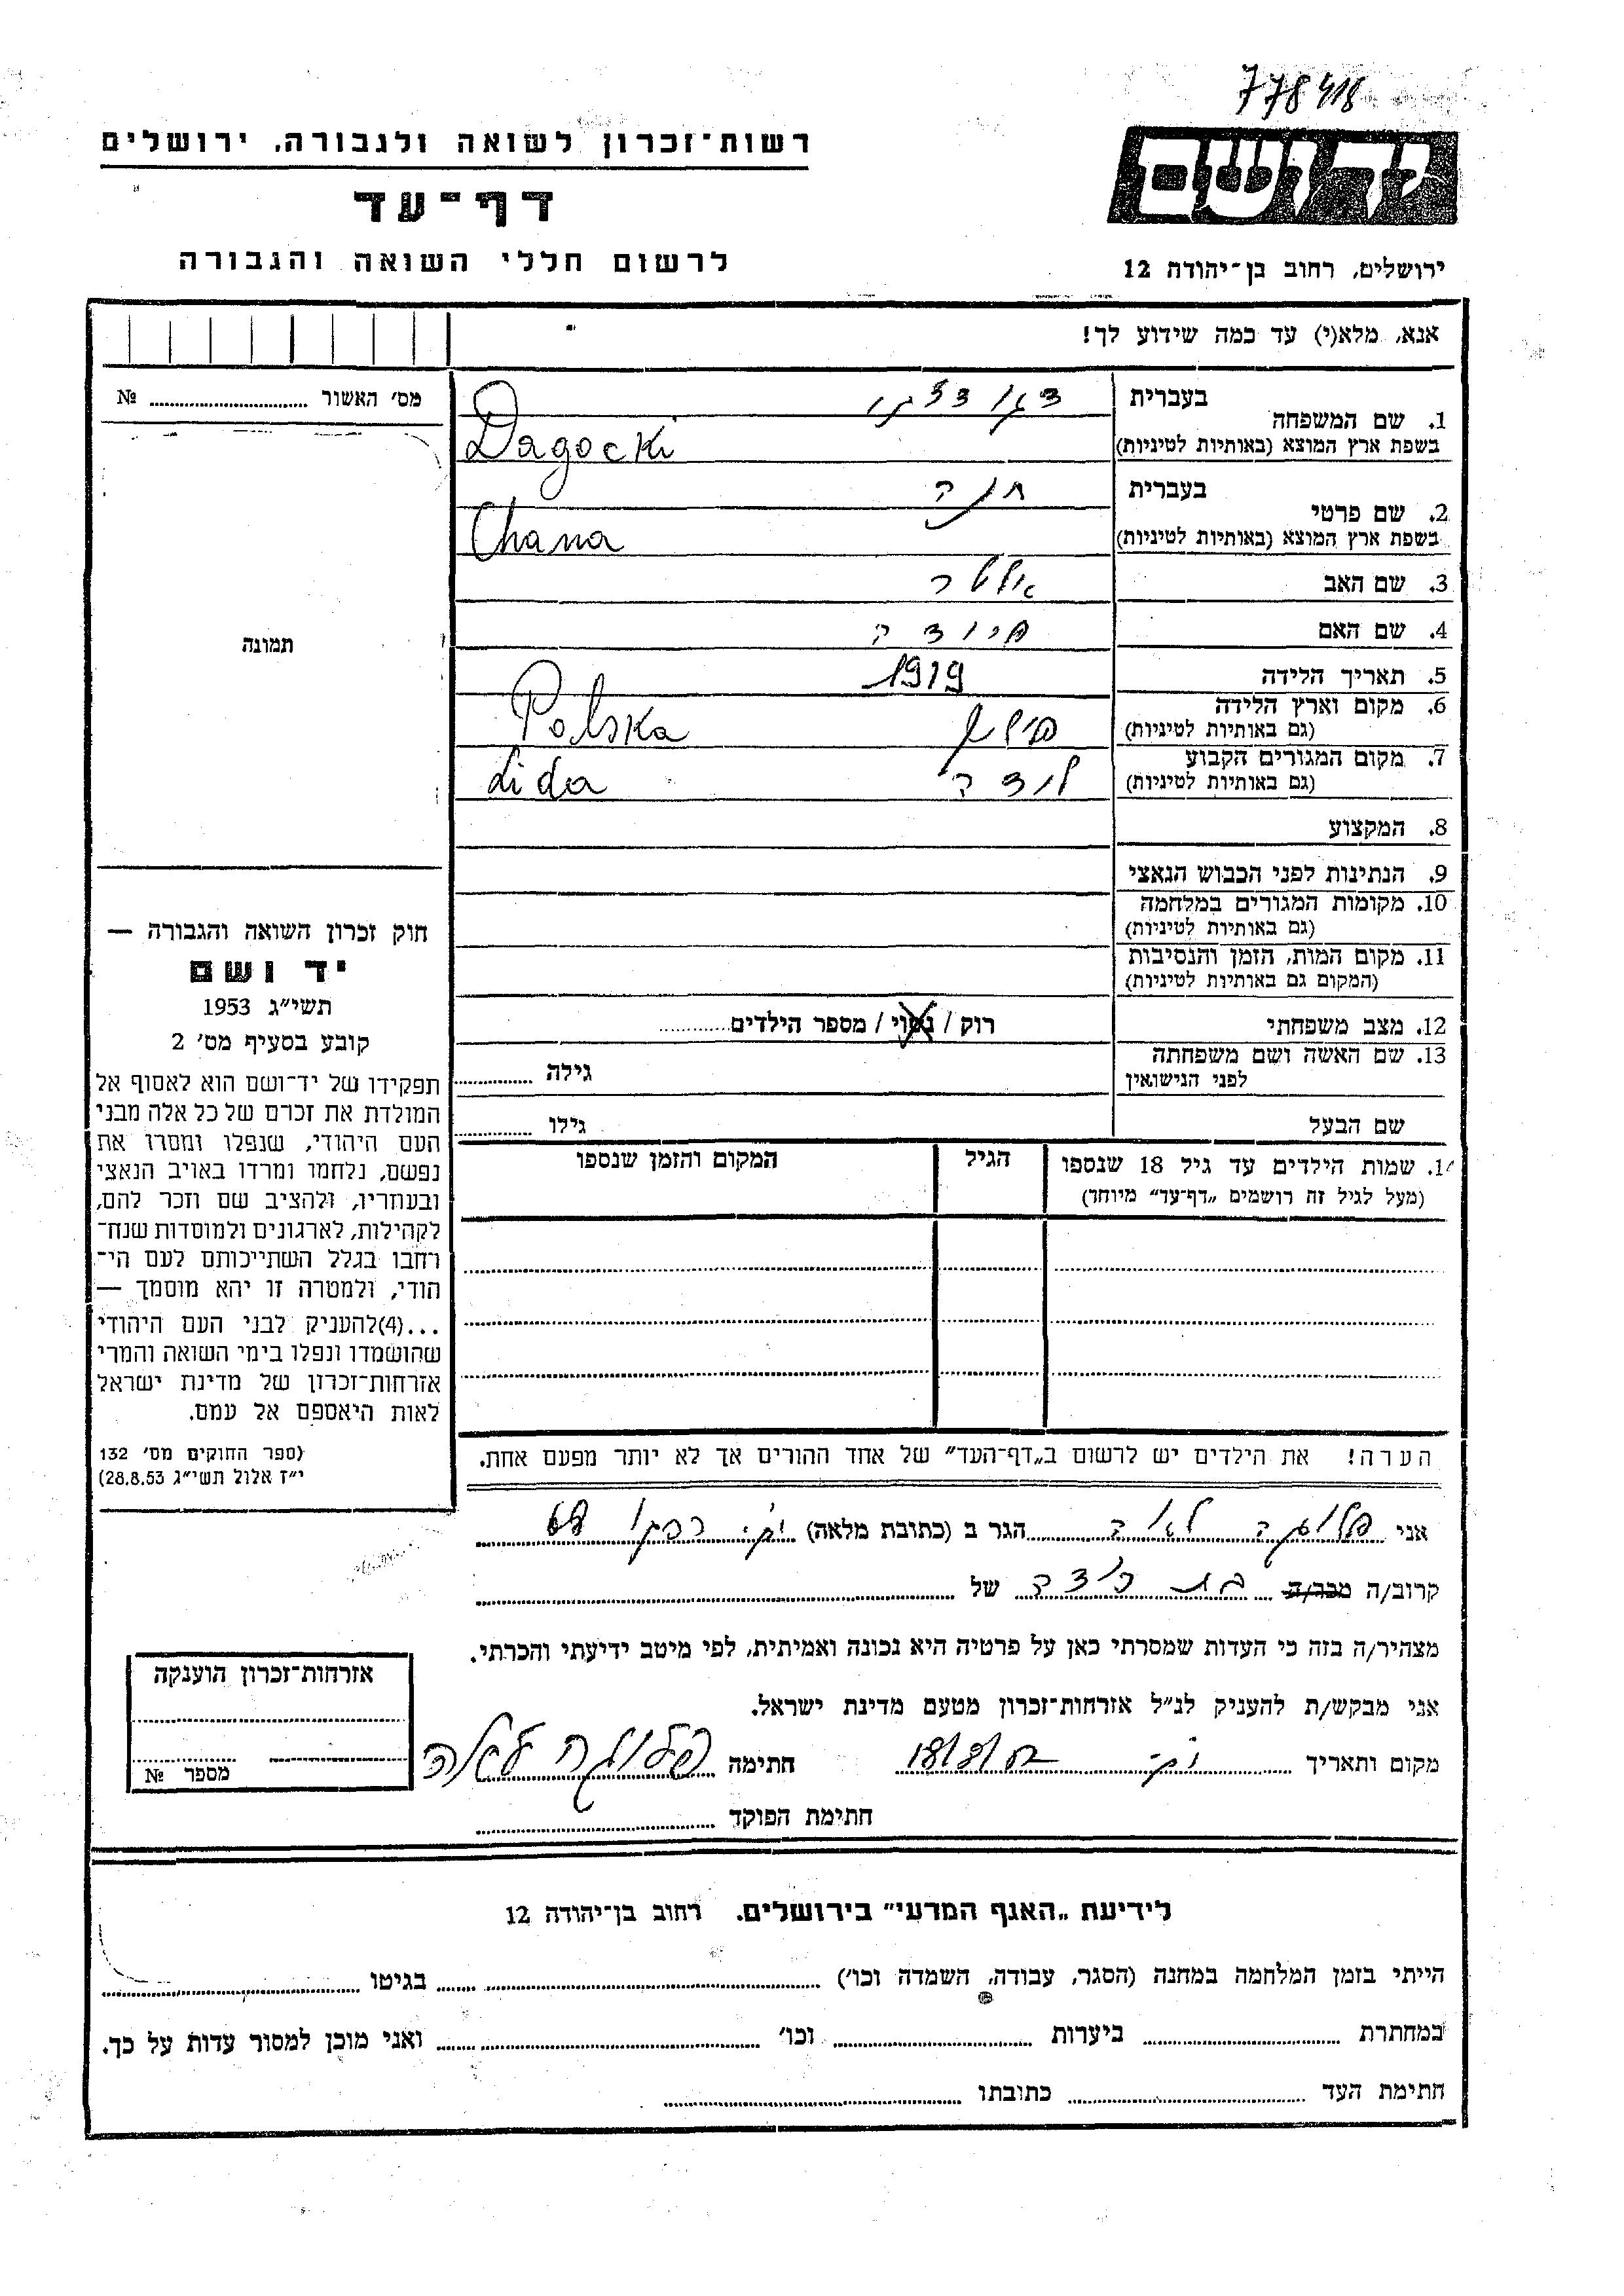 778418
רשות־זכרון לשואה ולגבורה, ירושלים
דף־עד
לרשום חללי השואה והגבורה
יד ושם
ירושלים, רחוב בן־יהודה 12
אנא, מלא(י) עד כמה שידוע לך!
מס׳ האשור № 
1. שם המשפחה
בעברית
בשפת ארץ המוצא (באותיות לטיניות)
Dagocki
2. שם פרטי
בעברית חנה
בשפת ארץ המוצא (באותיות לטיניות)
Chana
3. שם האב אלטר
4. שם האם
5. תאריך הלידה 1919
6. מקום וארץ הלידה
(גם באותיות לטיניות)
Polska
7. מקום המגורים הקבוע
(גם באותיות לטיניות)
לידה Lida
8. המקצוע
9. הנתינות לפני הכבוש הנאצי
10. מקומות המגורים במלחמה
(גם באותיות לטיניות)
11. מקום המות, הזמן והנסיבות
(המקום גם באותיות לטיניות)
12. מצב משפחתי רוק / נשוי / מספר הילדים
13. שם האשה ושם משפחתה
לפני הנישואין גילה
שם הבעל גילו
תמונה
חוק זכרון השואה והגבורה —
יד ושם
תשי״ג 1953
קובע בסעיף מס׳ 2
תפקידו של יד־ושם הוא לאסוף אל
המולדת את זכרם של כל אלה מבני
העם היהודי, שנפלו ומסרו את
נפשם, נלחמו ומרדו באויב הנאצי
ובעוזריו, ולהציב שם וזכר להם,
לקהילות, לארגונים ולמוסדות שנח־
רחבו בגלל השתייכותם לעם הי־
הודי, ולמטרה זו יהא מוסמך —
...(4)להעניק לבני העם היהודי
שהושמדו ונפלו בימי השואה והמרי
אזרחות־זכרון של מדינת ישראל
לאות היאספם אל עמם.
(ספר החוקים מס׳ 132
י״ז אלול תשי״ג 28.8.53)
14. שמות הילדים עד גיל 18 שנספו הגיל המקום והזמן שנספו
(מעל לגיל זה רושמים „דף־עד״ מיוחד)
הערה! את הילדים יש לרשום ב„דף־העד״ של אחד ההורים אך לא יותר מפעם אחת.
אני הגר ב (כתובת מלאה)
קרוב/ה מכר/ה בת דודה של
מצהיר/ה בזה כי העדות שמסרתי כאן על פרטיה היא נכונה ואמיתית, לפי מיטב ידיעתי והכרתי.
אני מבקש/ת להעניק לנ״ל אזרחות־זכרון מטעם מדינת ישראל.
מקום ותאריך חתימה
חתימת הפוקד
אזרחות־זכרון הוענקה
מספר №
לידיעת „האגף המדעי״ בירושלים. רחוב בן־יהודה 12
הייתי בזמן המלחמה במחנה (הסגר, עבודה, השמדה וכו׳) בגיטו
במחתרת ביערות וכו׳ ואני מוכן למסור עדות על כך.
חתימת העד כתובתו